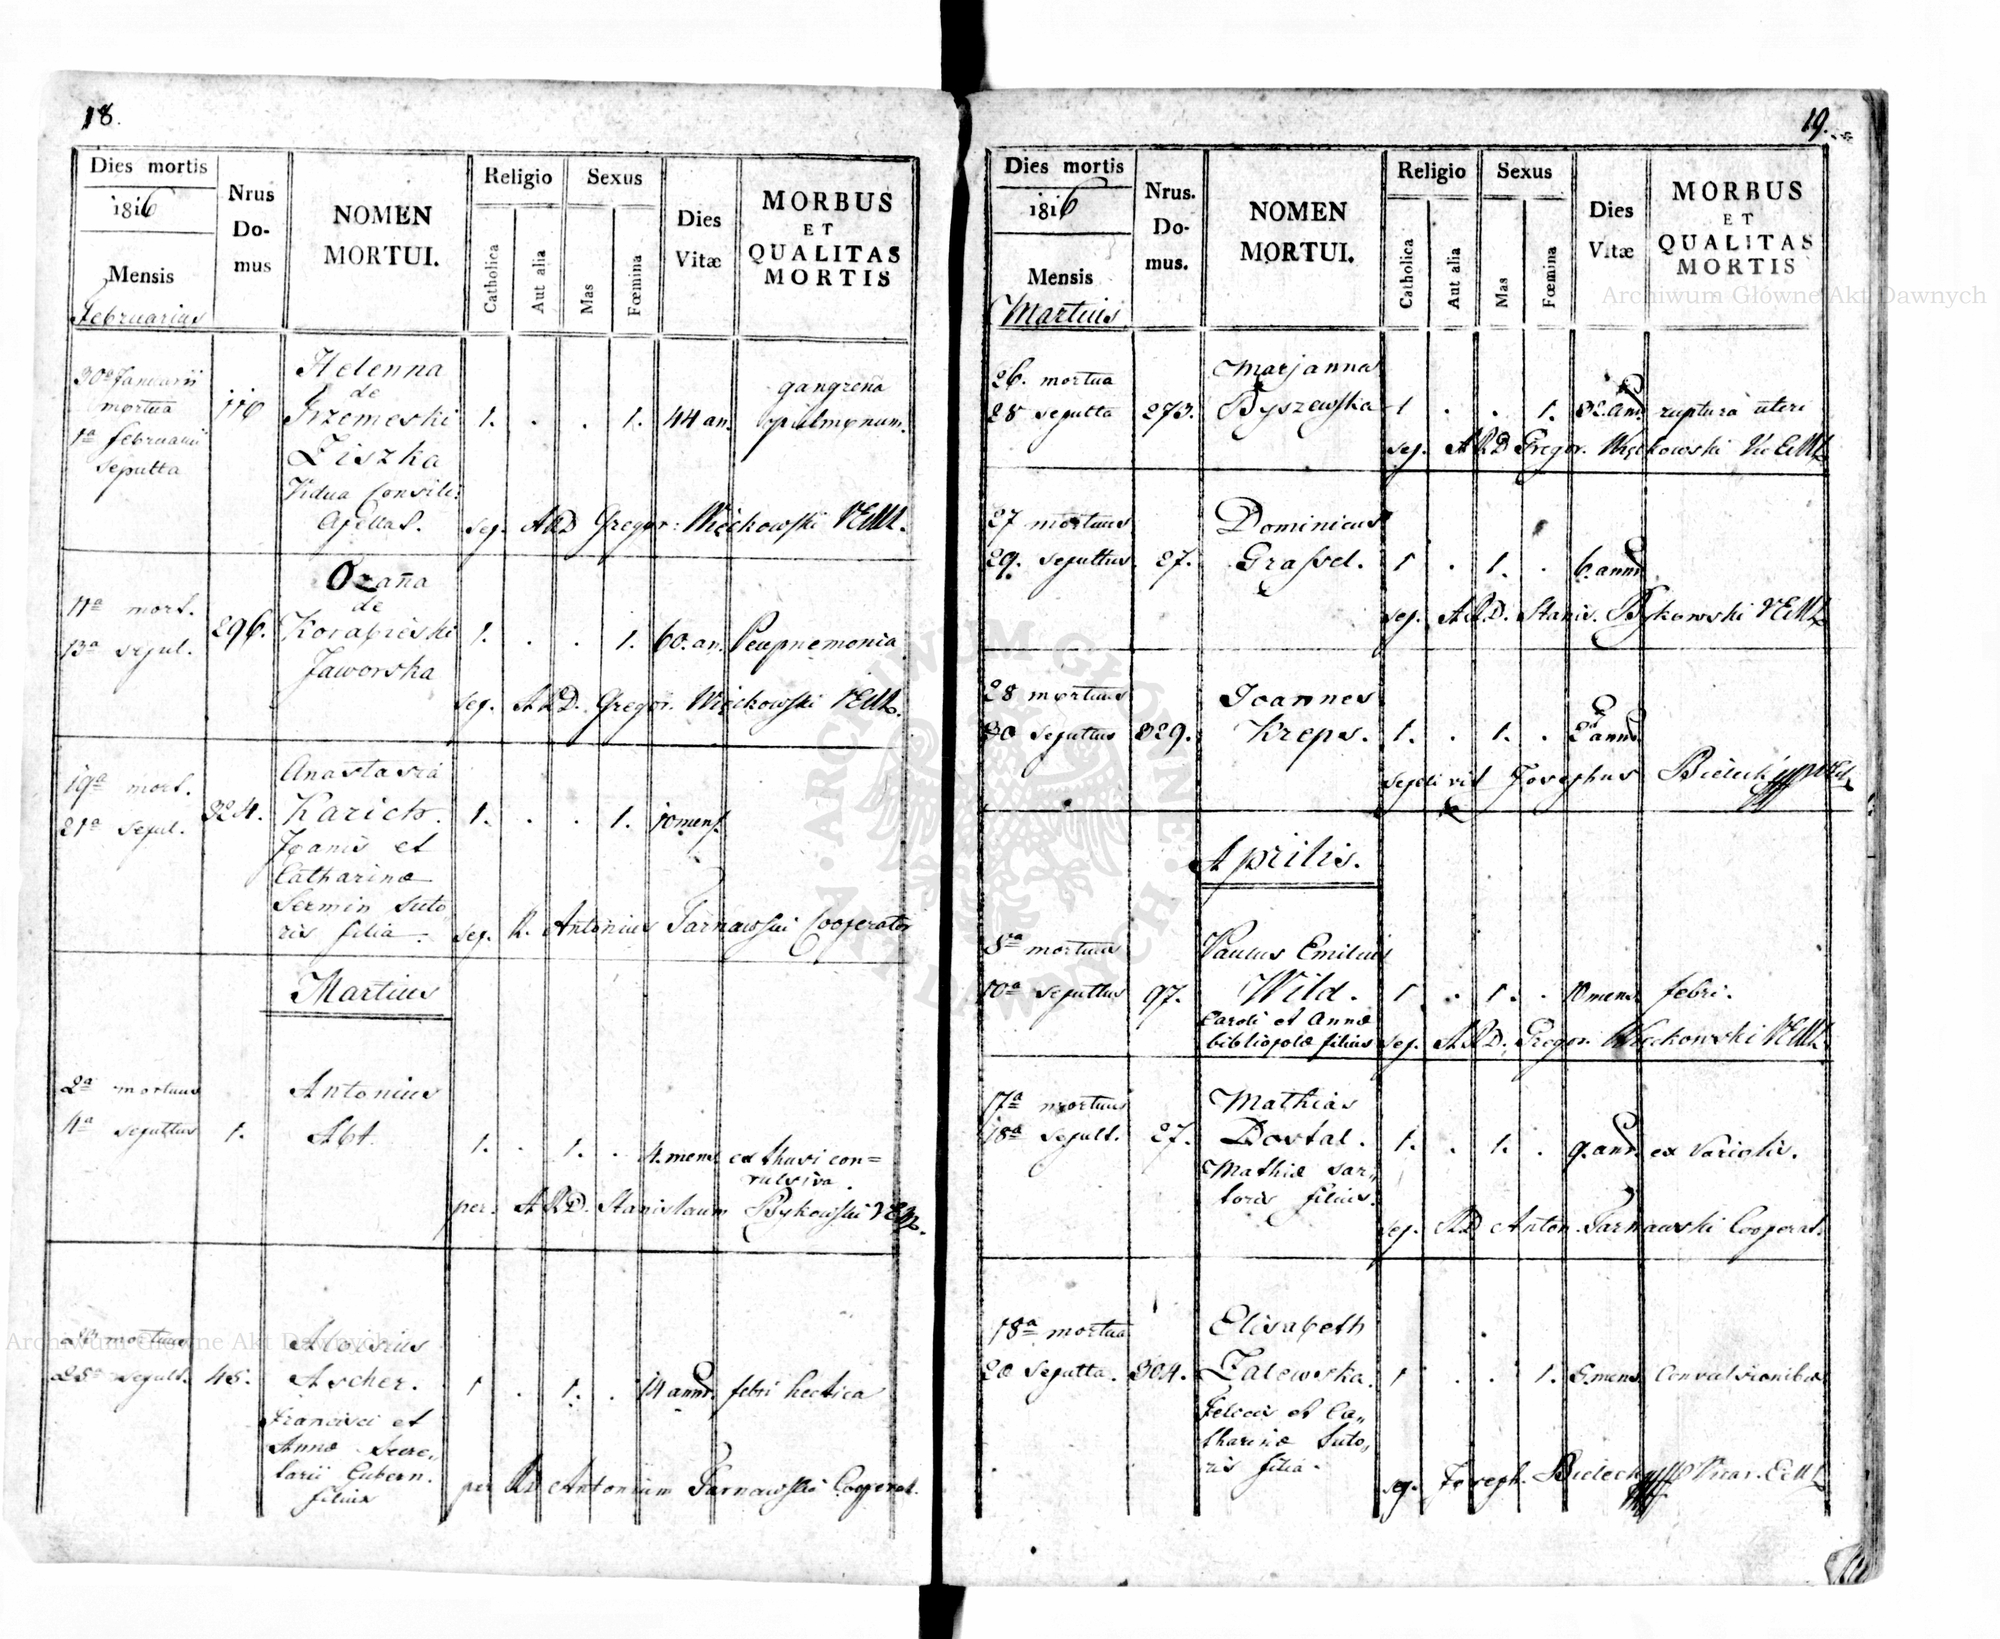 18.
Dies mortis
1816
Mensis
Februarius
Nrus
Do-
mus
NOMEN
MORTUI.
Religio
Catholica
Aut alia
Sexus
Mas
Fœmina
Dies
Vitæ
MORBUS
ET
QUALITAS
MORTIS
30a Januarii
mortua
1a februarii
sepulta
110
Helenna
de
Grzemeski
Ziszka
Vidua Consili:
Apellas.
1. . . 1. 44 an.
gangrena
pulmonum.
sep. ARD Gregor: Więckowski VEML.
11a mort.
13a sepul.
296.
Ozaña
de
Jaworska
1. . . 1. 60. an. Peupnemonia
sep. ARD. Gregor. Więckowski VEML.
19a mort.
21a sepul.
324.
Anastasia
Karich.
Joanis et
Catharinæ
Sermin suto
ris filia.
1. . . 1. 10 mens.
sep. R. Antonius Tarnawski Cooperator
Martius
2a mortuus
4a sepultus
1.
Antonius
Abt.
1. . 1. . 4. mens. ex thusi con=
vulsiva.
per. ARD. Stanislaum Bykowski VEML.
mortuus
25a sepult.
45.
Aloisius
Ascher.
Francisci et
Annæ Secre,,
tarii Gubern.
filius
1 . 1. . 14 annr. febri hectica
per RD Antonium Tarnawski Cooperat.
19.
Dies mortis
1816
Mensis
Martius
Nrus.
Do-
mus.
NOMEN
MORTUI.
Religio
Catholica
Aut alia
Sexus
Mas
Fœmina
Dies
Vitæ
MORBUS
ET
QUALITAS
MORTIS
Archiwum Główne Akt Dawnych
26. mortua
28 sepulta
273.
Marjanna
Byszewska
1 . . 1. 32. ann. ruptura uteri
sep. ARD Gregor. Więckowski Vic EML
27 mortuus
29. sepultus
27.
Dominicus
Grassel.
1 . 1. . 6. ann.
sep. A.R.D. Stanis. Bykowski VEML
28 mortuus
30 sepultus
329.
Joannes
Kreps.
1. . 1. . 2 ann.
sepelivit Josephus Bielecki
Aprilis.
8a mortuus
10a sepultus
97.
Paulus Emilius
Wild.
Caroli et Annæ
bibliopolæ filius
1 . 1. . 10 mens. febri.
sep. A.R.D. Gregor. Więckowski VEML.
17a mortuus
18a sepult.
27.
Mathias
Dostal.
Mathiæ sar,,
toris filius.
1. . 1. . 9. ann. ex Variolis.
sep. RD Anton. Tarnawski Cooperat.
18a mortua
20 sepulta.
304.
Elisabeth
Zalewska.
Felicis et Ca,,
tharinæ suto,,
ris filia.
1 . . 1. 6. mens. Convulsionibus
sep. Joseph. Bielecki Vicar. EML
Archiwum Główne Akt Dawnych
ARCHIWUM GŁÓWNE AKT DAWNYCH